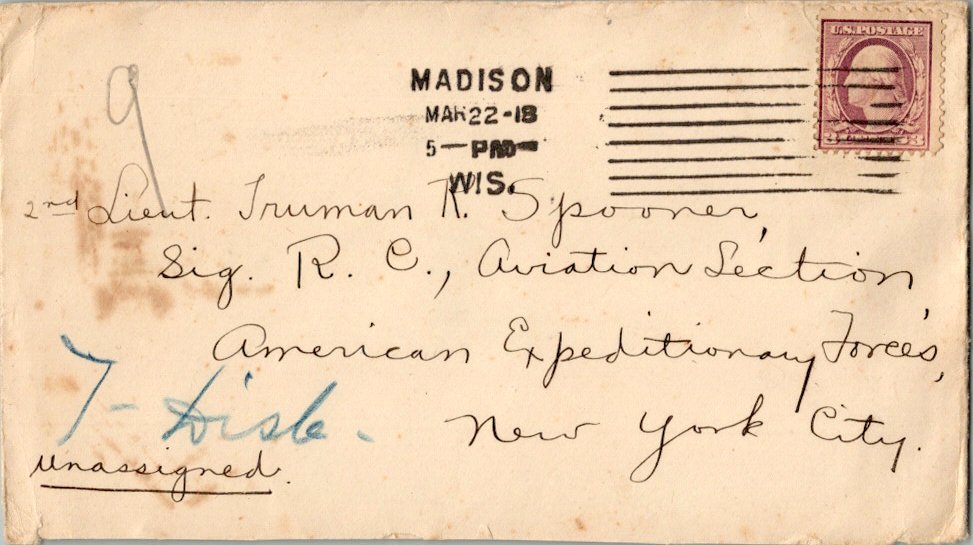 U.S. POSTAGE
3 3
MADISON
MAR 22-18
5-PM
WIS.
9
2nd Lieut. Truman R. Spooner,
Sig. R. C., Aviation Section
American Expeditionary Forces,
New York City.
7-
unassigned.